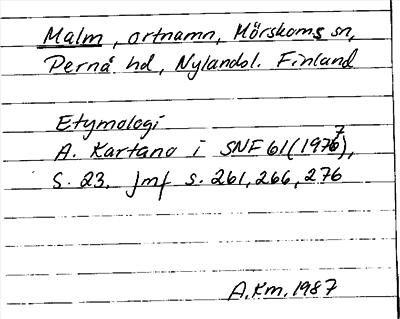 Malm, ortnamn, Mörskoms sn,
Pernå hd, Nylandsl. Finland
Etymologi
A. Kartano i SNE 61 (1976⁷),
s. 23. Jmf s. 261, 266, 276
A.Km. 1987